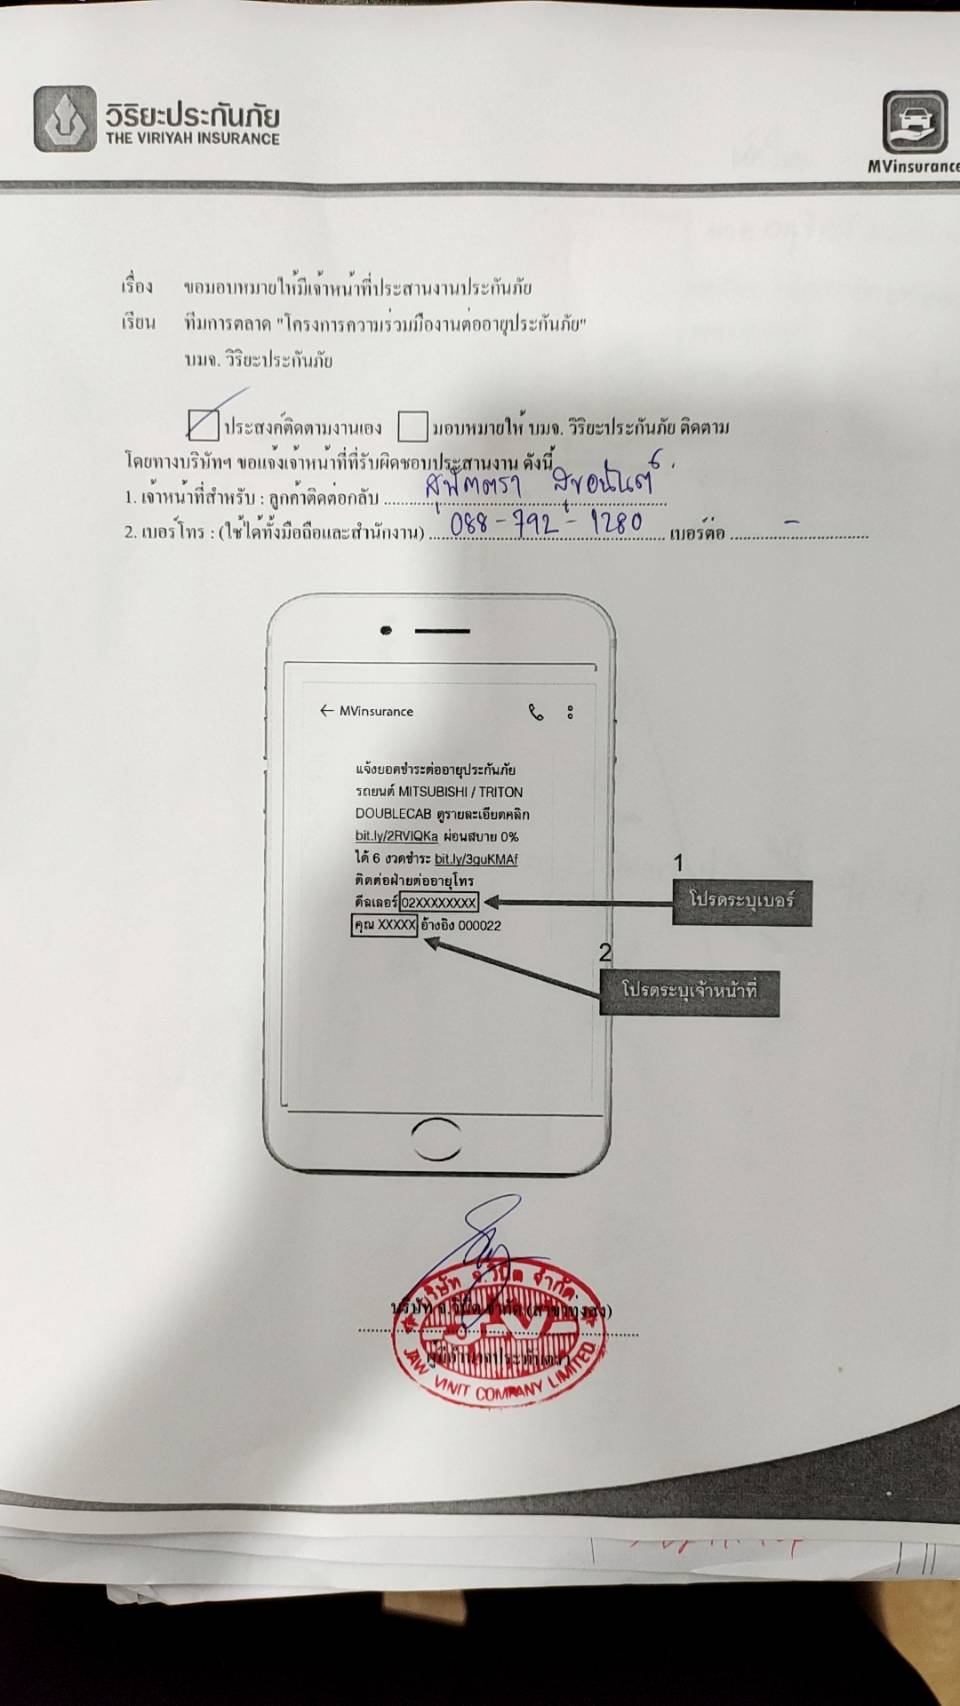 วิริยะประกันภัย
THE VIRIYAH INSURANCE
MVinsurance
เรื่อง ขอมอบหมายให้มีเจ้าหน้าที่ประสานงานประกันภัย
เรียน ทีมการตลาด "โครงการความร่วมมืองานต่ออายุประกันภัย"
บมจ. วิริยะประกันภัย
ประสงค์ติดตามงานเอง มอบหมายให้ บมจ. วิริยะประกันภัย ติดตาม
โดยทางบริษัทฯ ขอแจ้งเจ้าหน้าที่ที่รับผิดชอบประสานงาน ดังนี้
1. เจ้าหน้าที่สำหรับ : ลูกค้าติดต่อกลับ สุพัตตรา สุขอนันต์
2. เบอร์โทร : (ใช้ได้ทั้งมือถือและสำนักงาน) 088-792-1280 เบอร์ต่อ -
← MVinsurance
แจ้งยอดชำระต่ออายุประกันภัย
รถยนต์ MITSUBISHI / TRITON
DOUBLECAB ดูรายละเอียดคลิก
bit.ly/2RVIQKa ผ่อนสบาย 0%
ได้ 6 งวดชำระ bit.ly/3guKMAf
ติดต่อฝ่ายต่ออายุโทร
ดีลเลอร์ 02XXXXXXXX
คุณ XXXXX อ้างอิง 000022
1
โปรดระบุเบอร์
2
โปรดระบุเจ้าหน้าที่
บริษัท จ.วินิต จำกัด
บริษัท จ.วินิต จำกัด (สาขาทุ่งสง)
JAW VINIT COMPANY LIMITED